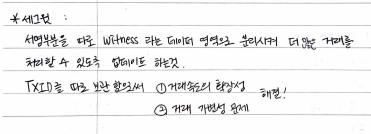 * 세그윗 :
서명부분을 따로 Witness 라는 데이터 영역으로 분리시켜 더 많은 거래를
처리할 수 있도록 업데이트 하는것.
TXID를 따로 보관 함으로써 ① 거래속도의 확장성 해결!
② 거래 가변성 문제